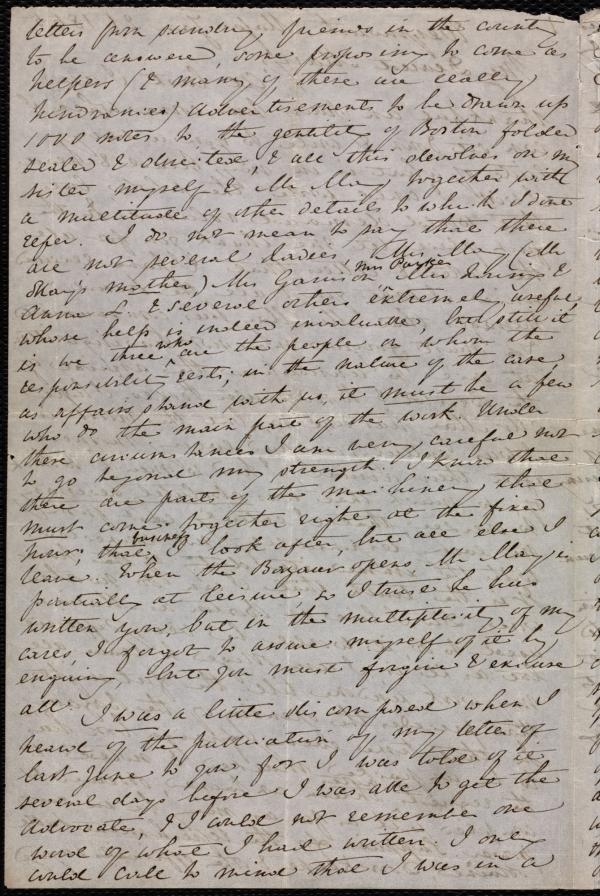 letters from sundry friends in the country
to be answered, some proposing to come as
helpers (& many of these are really
hindrances) Advertisements to be drawn up
1000 notes to the gentility of Boston folded
sealed & directed, & all this devolves on my
sister myself & Mr May together with
a multitude of other details to which I dont
refer. I do not mean to say that there
are not several ladies, Mrs May (Mr
May's mother,) Mrs Garrison, Mrs Parker &
Anna L. & several others extremely useful,
whose help is indeed invaluable, but still it
is we three who are the people on whom the
responsibility rests; in the nature of the case,
as affairs stand with us, it must be a few
who do the main part of the work. Under
these circumstances I am very careful not
to go beyond my strength. I know that
there are parts of the machinery that
must come together right at the fixed
hour, that business I look after, but all else I
leave. When the Bazaar opens Mr May is
partially at leisure so I trust he has
written you, but in the multiplicity of my
cares, I forgot to assure myself of it by
enquiry, but you must forgive & excuse
all I was a little discomposed when I
heard of the publication of my letter of
last June to you, for I was told of it
several days before I was able to get the
Advocate, & I could not remember one
word of what I had written. I only
could call to mind that I was in a